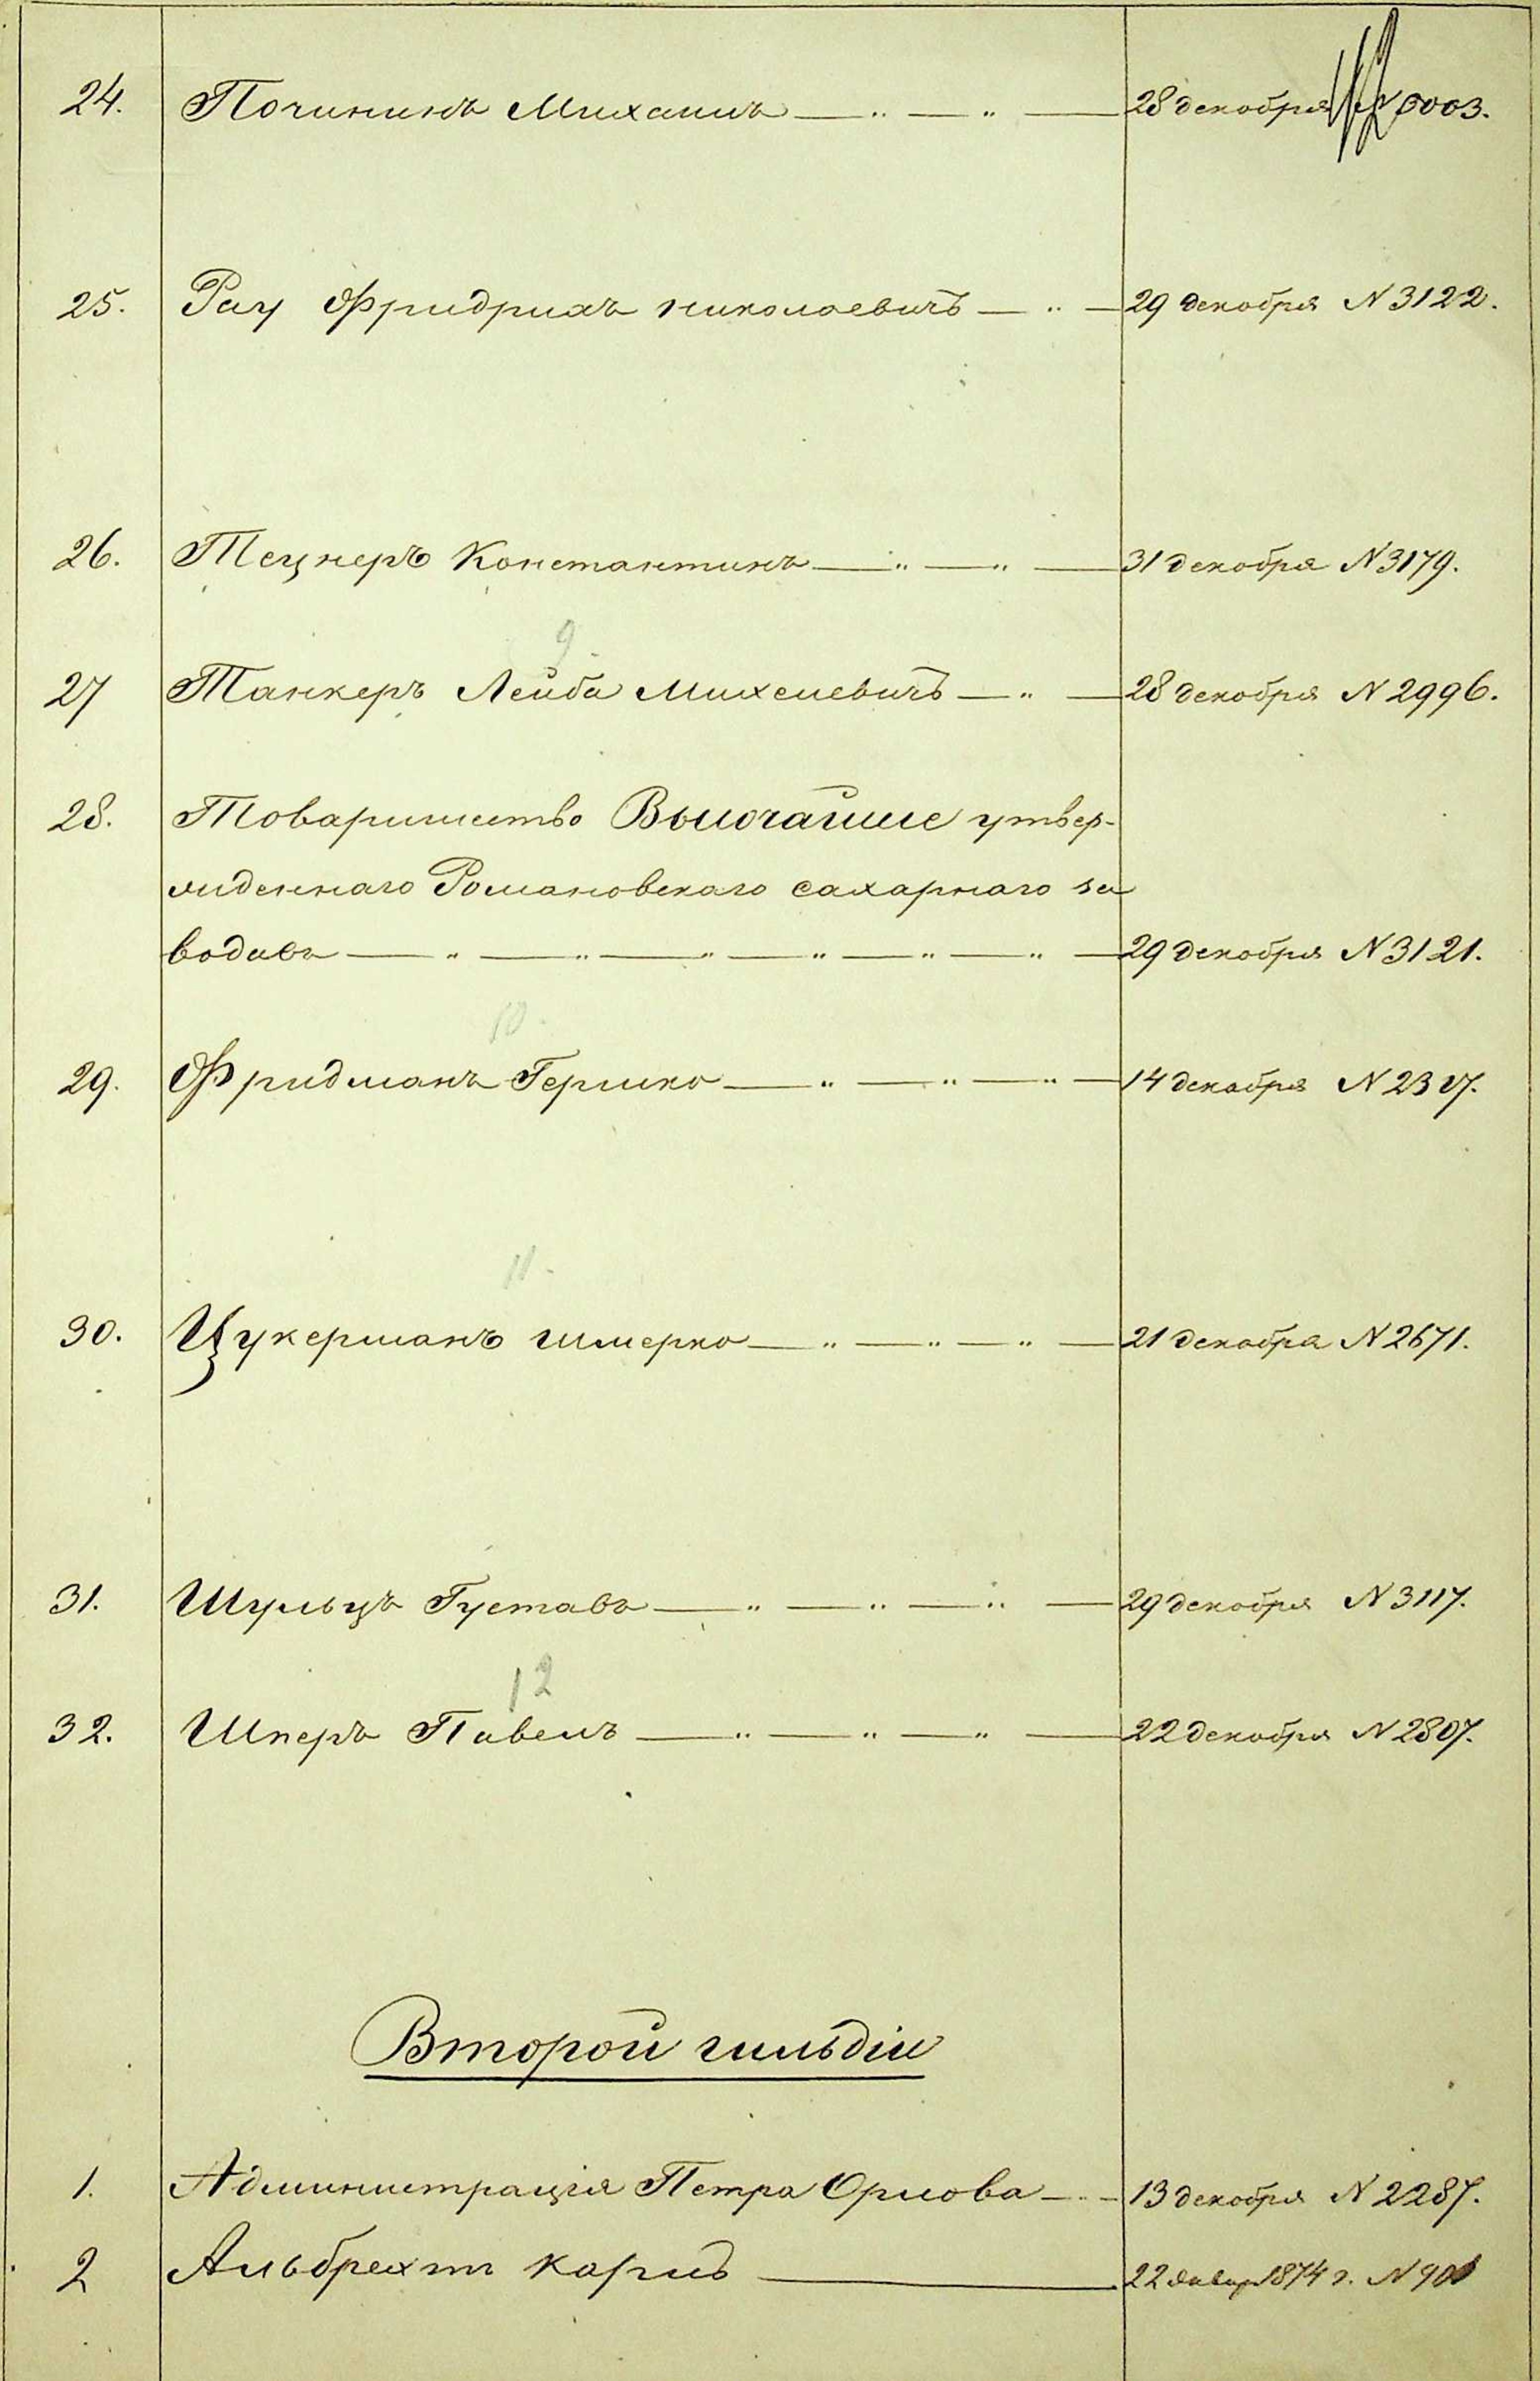 24. Почининъ Михаилъ — „ — „ — 28 декабря № 3003.
25. Рау Фридрихъ Николаевичъ — „ — 29 декабря N 3122.
26. Тецнеръ Константинъ — „ — „ — 31 декабря N 3179.
9.
27 Танкеръ Лейба Михелевичъ — „ — 28 декабря N 2996.
28. Товарищество Высочайше утвер-
жденнаго Романовскаго сахарнаго за
водовъ — „ — „ — „ — „ — „ — „ — 29 декабря N 3121.
10.
29. Фридманъ Гершко — „ — „ — „ — 14 декабря N 2317.
11.
30. Цукерманъ Шмерко — „ — „ — „ — 21 декабря N 2671.
31. Шульцъ Густавъ — „ — „ — „ — 29 декабря N 3117.
12
32. Шперъ Павелъ — „ — „ — „ — 22 декабря N 2807.
Второй гильдіи
1. Администрація Петра Орлова — „ — 13 декабря N 2287.
2 Альбрехтъ Карлъ — 22 январ 1874 г. N